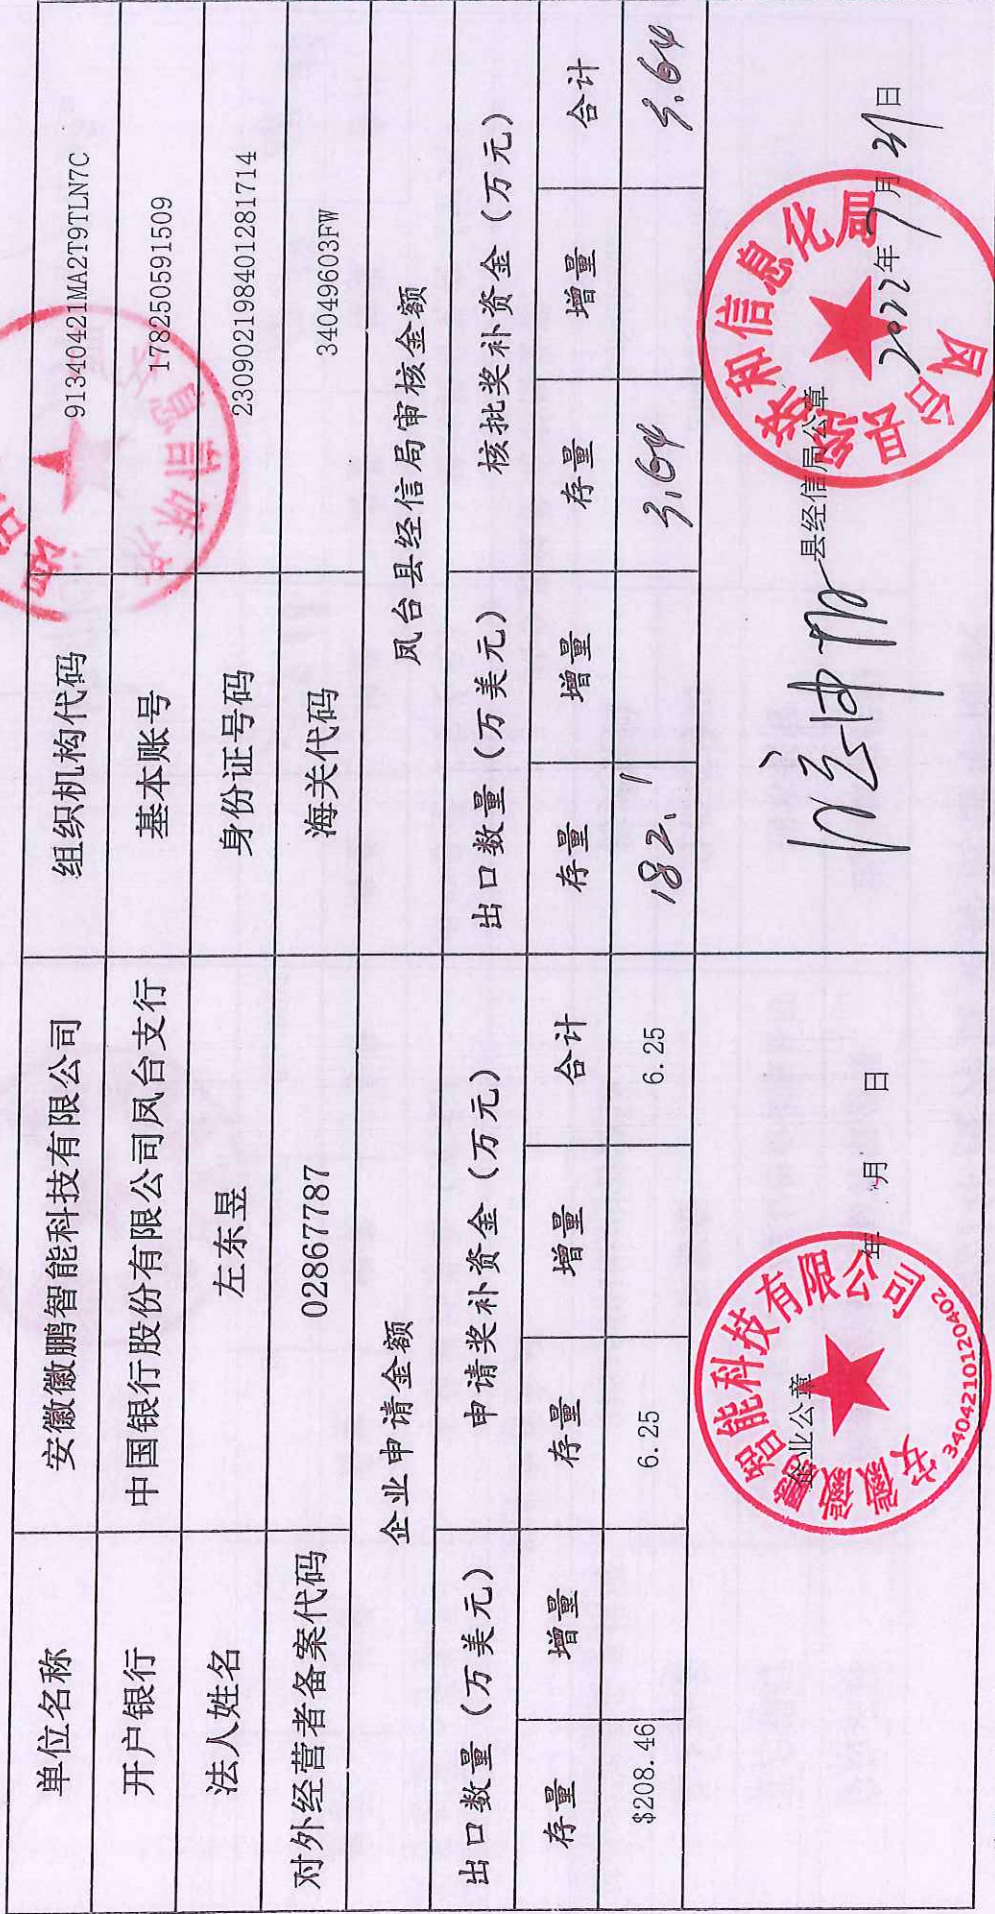 单位名称 安徽徽鹏智能科技有限公司 组织机构代码 91340421MA2T9TLN7C
开户银行 中国银行股份有限公司凤台支行 基本账号 178250591509
法人姓名 左东昱 身份证号码 230902198401281714
对外经营者备案代码 02867787 海关代码 34049603FW
企业申请金额 凤台县经信局审核金额
出口数量（万美元） 申请奖补资金（万元） 出口数量（万美元） 核批奖补资金（万元）
存量 增量 存量 增量 合计 存量 增量 存量 增量 合计
$208.46 6.25 6.25 182.1 3.64 3.64
企业公章 县经信局公章
年 月 日 2022年7月21日
安徽徽鹏智能科技有限公司
3404210120402
凤台县经济和信息化局